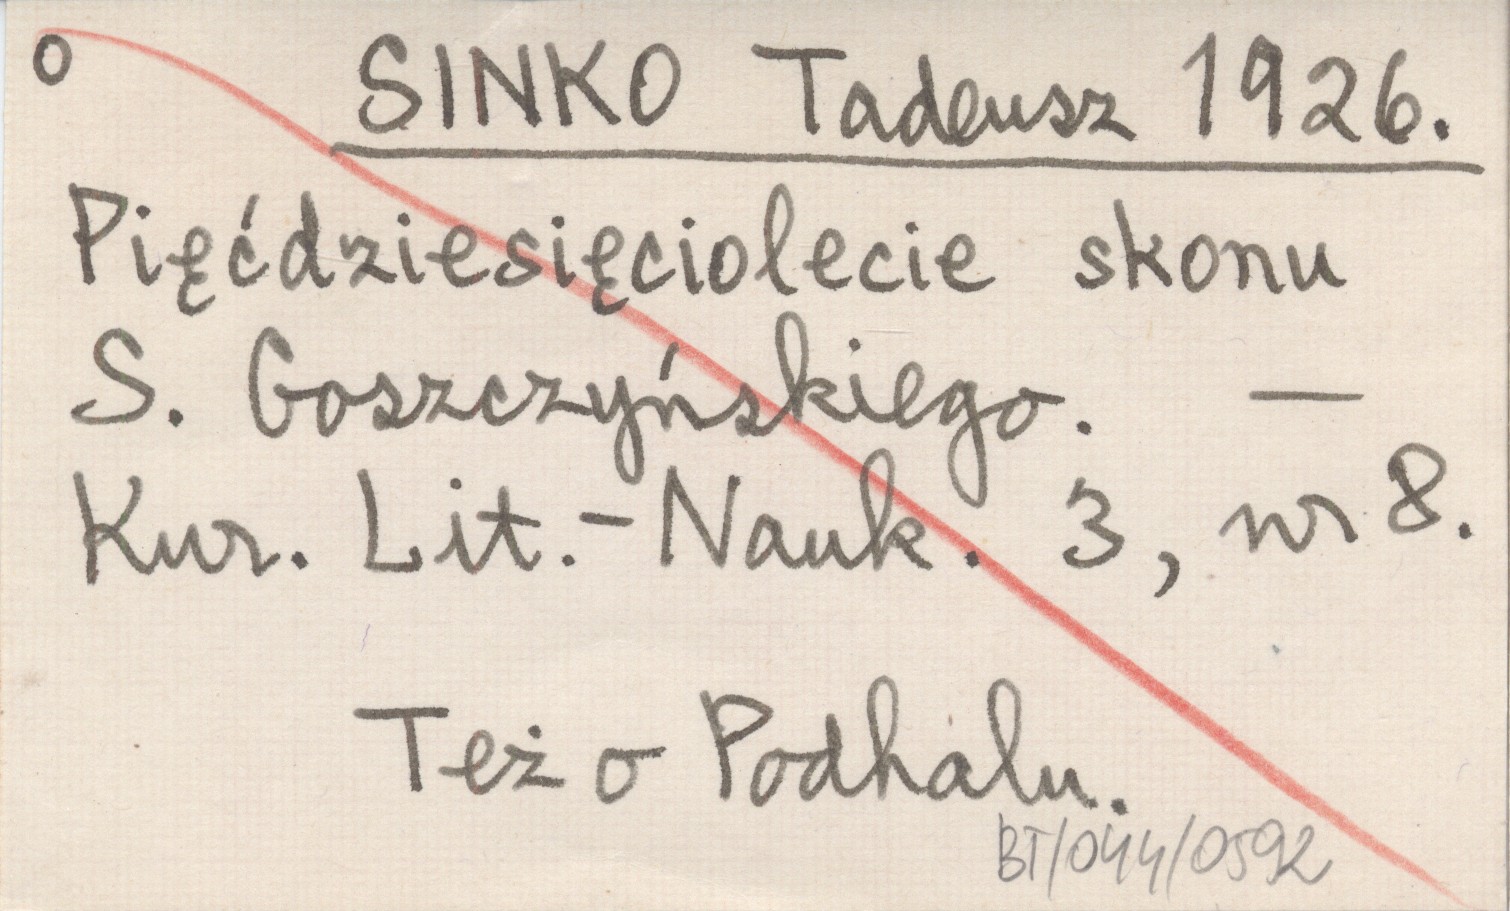 o SINKO Tadeusz 1926.
Pięćdziesięciolecie skonu
S. Goszczyńskiego. —
Kur. Lit.-Nauk. 3, nr 8.
Też o Podhalu.
BT/044/0592